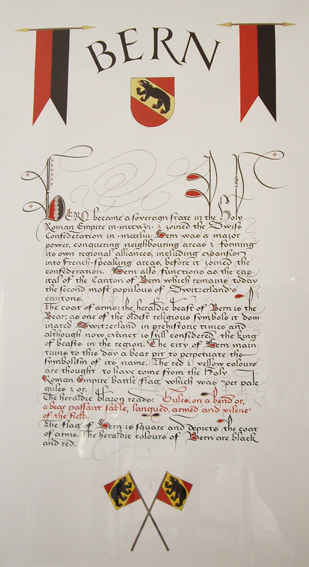 BERN
BERN became a sovereign state in the Holy
Roman Empire in mccxviii & joined the Swiss
Confederation in mcccliii. Bern was a major
power, conquering neighbouring areas & forming
its own regional alliances, including expansion
into French-speaking areas, before it joined the
confederation. Bern also functions as the cap
ital of the Canton of Bern which remains today
the second most populous of Switzerland's
cantons.
The coat of arms: the heraldic beast of Bern is the
Bear; as one of the oldest religious symbols it dom
inated Switzerland in prehistoric times and
although now extinct is still considered the king
of beasts in the region. The city of Bern main
tains to this day a bear pit to perpetuate the
symbolism of its name. The red & yellow colours
are thought to have come from the Holy
Roman Empire battle flag which was per pale
gules & or.
The heraldic blazon reads: Gules, on a bend or,
a bear passant sable, langued, armed and pizzle
of the field.
The flag of Bern is square and depicts the coat
of arms. The heraldic colours of Bern are black
and red.